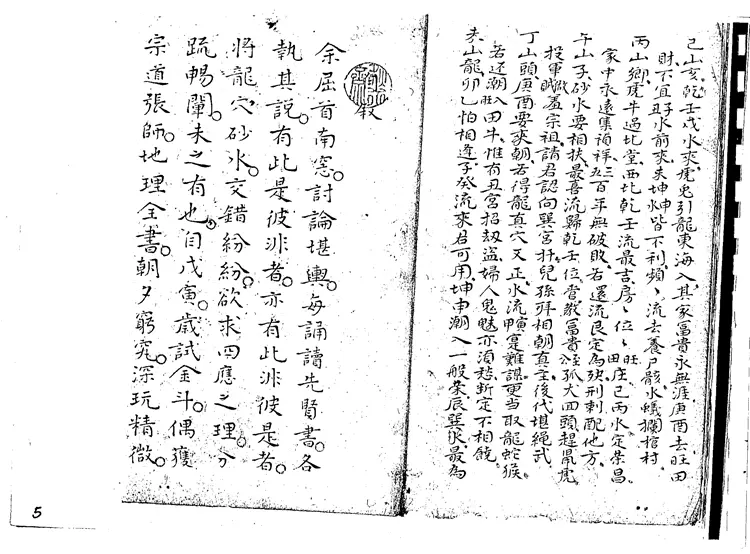 己山亥乾壬戌水來虎兎引龍東海入其家富貴永無涯庚酉去旺田
財不宜丑子水前來朱坤坤皆不利頻、流去養尸骸水蟻攔棺村
丙山卿虎牛過比堂西北乾壬流最吉房、位、旺田庄己丙水定荣昌
家中永遠集福祥三五百年無破敗若還流艮定為殃刑刺配他方
午山子砂水要相扶最喜流歸乾壬位當教富貴孤大四頭趕鼠虎
投軍賊羞宗祖請君認向巽宮扦兒孫拜相朝直至後代堪繩武
丁山頭庚酉要來朝若得龍真穴又正水流寅甲定難謀更当取龍蛇猴
若逆潮入旺田牛惟有丑宮招劫盜婦人鬼魅亦須愁斬定不相饒
未山龍卯乙怕相逢子癸流來君可用坤申潮入一般荣辰巽水最為
叙
余屈首南窓討論堪輿每誦讀先賢書各
執其說有此是彼非者亦有此非彼是者
將龍穴砂水交錯紛紛欲求四應之理分
疏暢闡未之有也自戊寅歲試金斗偶獲
宗道張師地理全書朝夕窮究深玩精微
5